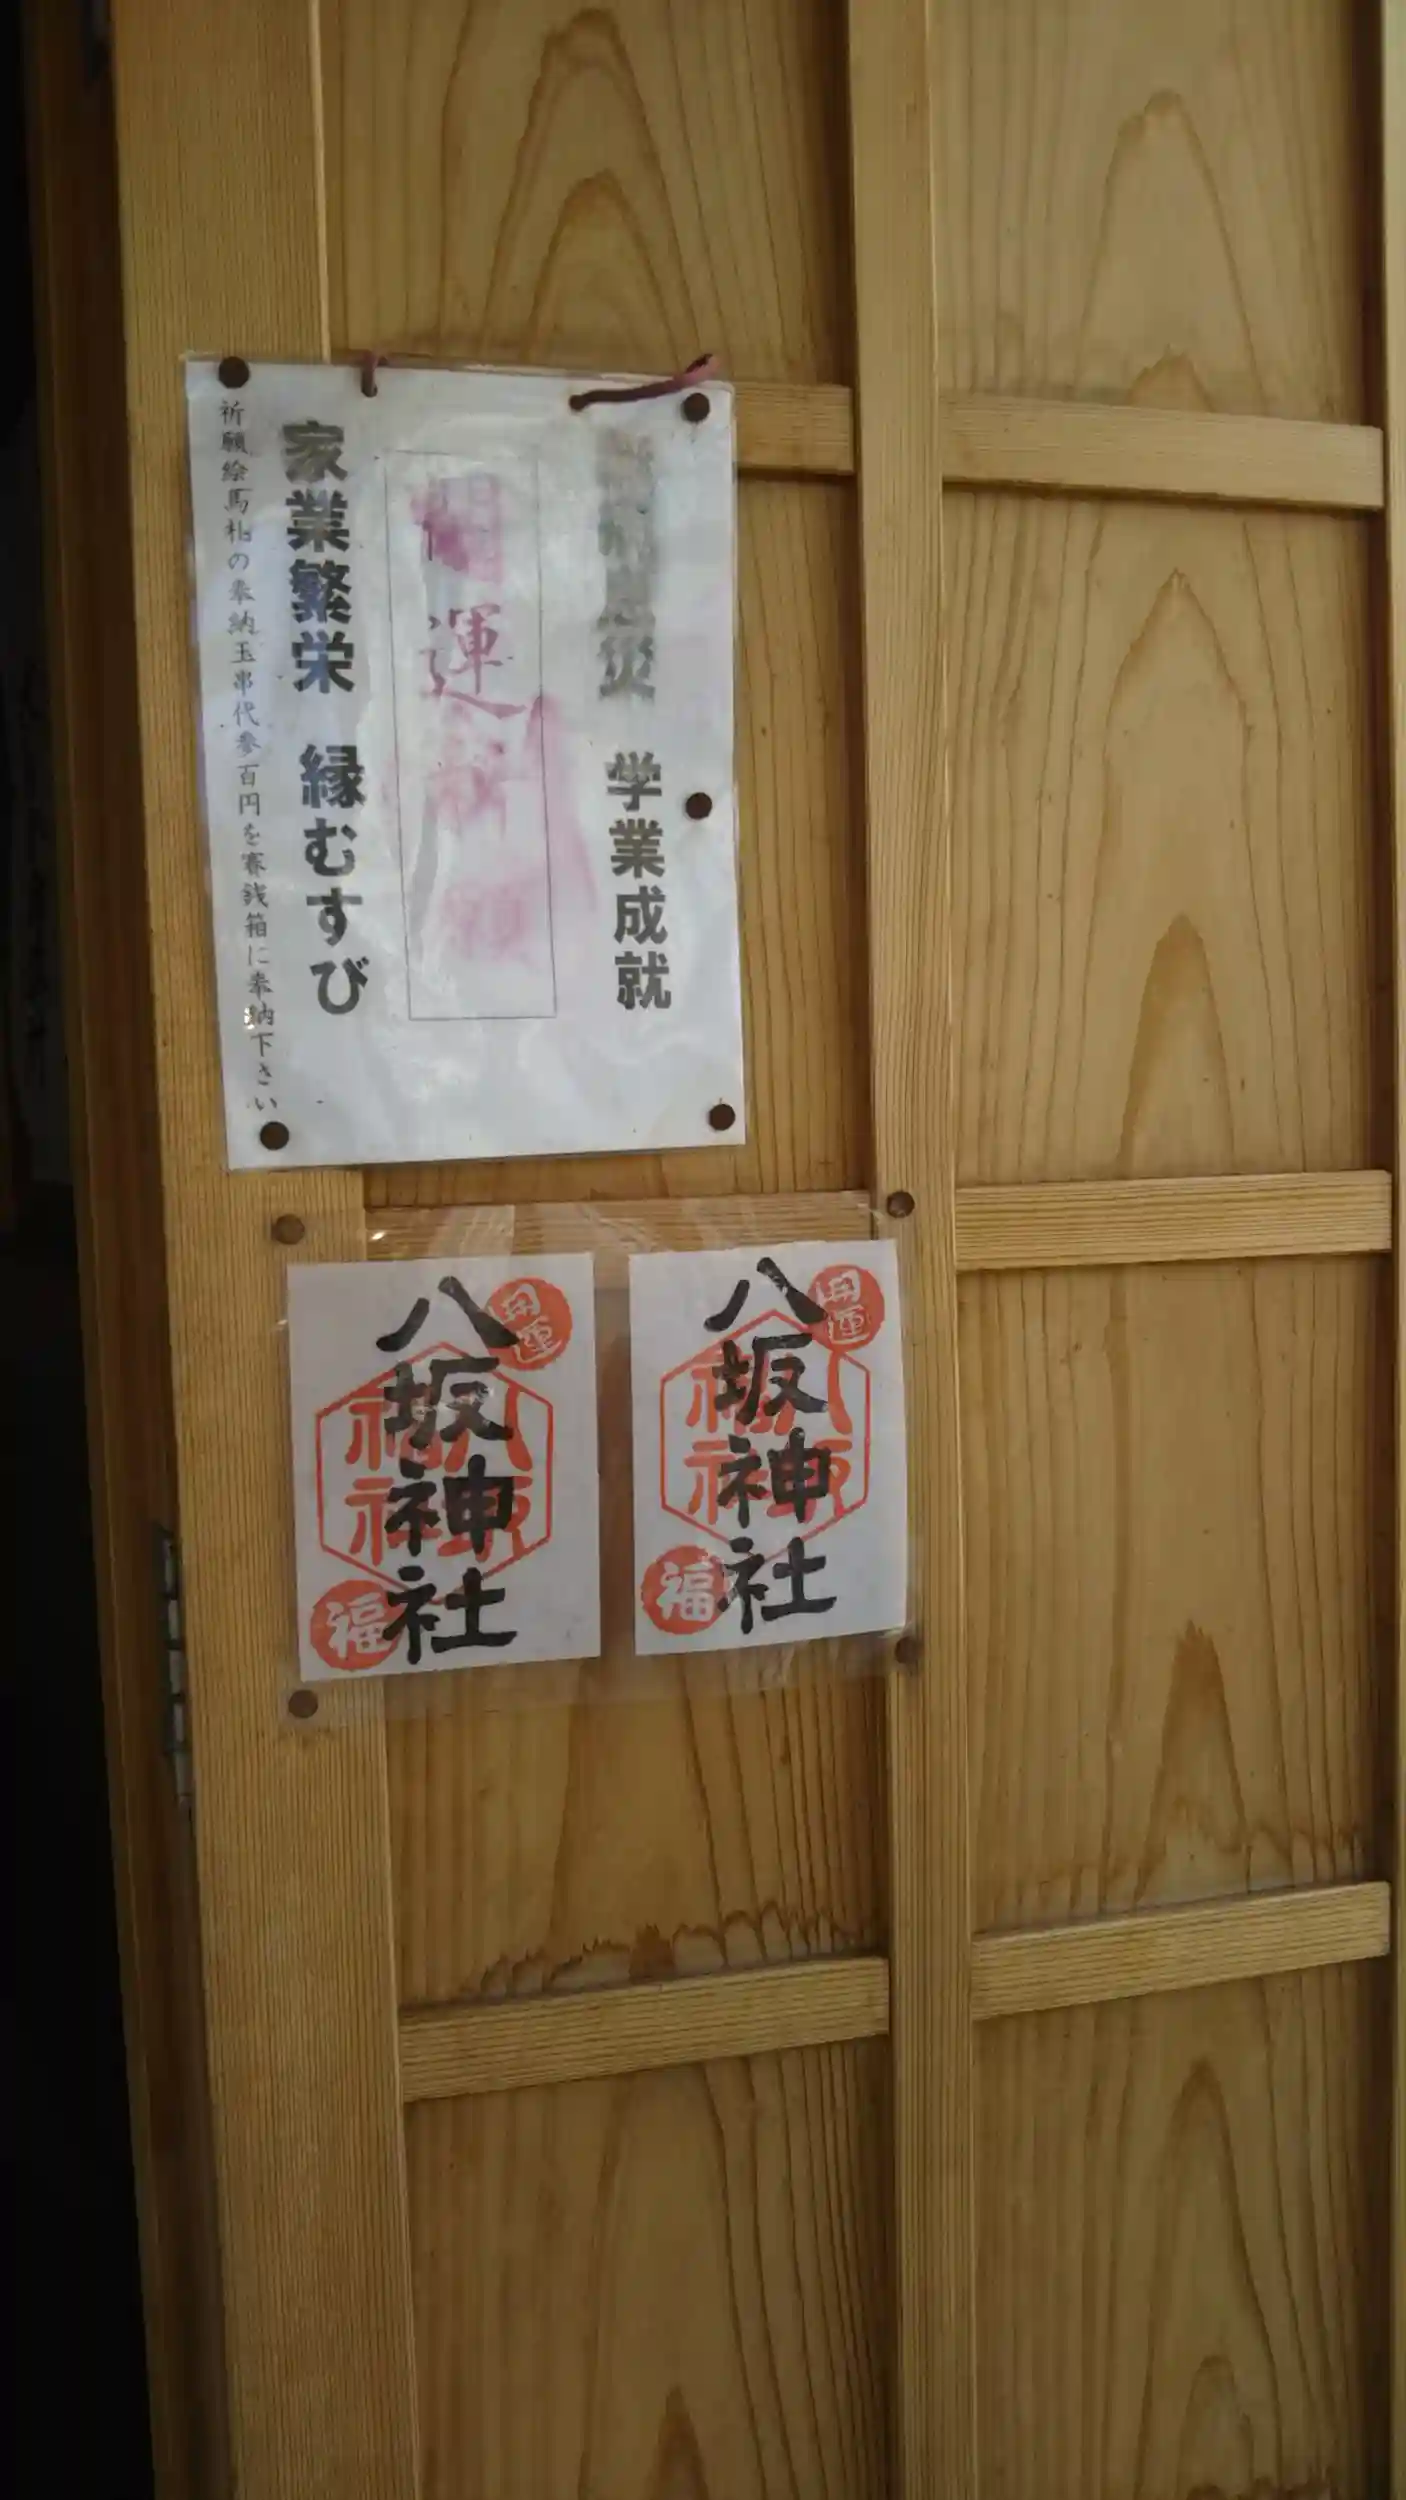 学業成就
開運祈願
家業繁栄 縁むすび
祈願絵馬札の奉納玉串代参百円を賽銭箱に奉納下さい
開運
八坂神社
福
開運
八坂神社
福